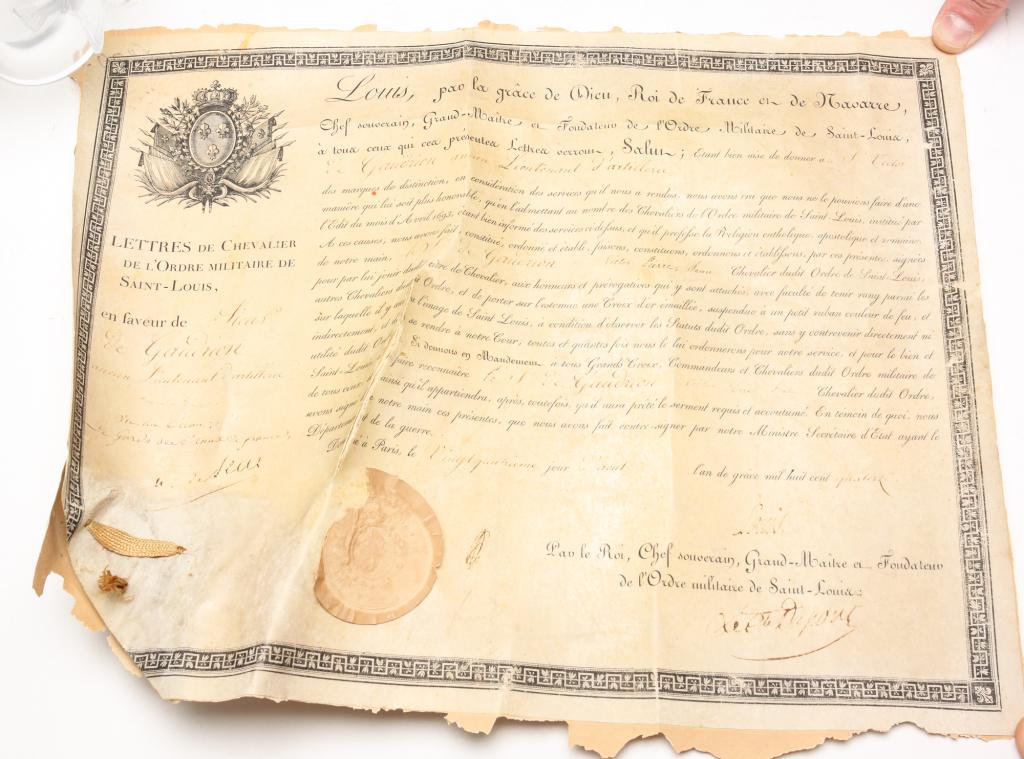 LETTRES DE CHEVALIER
DE L'ORDRE MILITAIRE DE
SAINT-LOUIS,
en faveur de
De Gaudrion
ancien Lieutenant d'artillerie
Louis, par la grâce de Dieu, Roi de France et de Navarre,
Chef souverain, Grand-Maître et Fondateur de l'Ordre Militaire de Saint-Louis,
à tous ceux qui ces présentes Lettres verront, Salut; Etant bien aise de donner au S. Victor
De Gaudrion ancien Lieutenant d'artillerie
des marques de distinction, en considération des services qu'il nous a rendus, nous avons cru que nous ne le pouvions faire d'une
manière qui lui soit plus honorable, qu'en l'admettant au nombre des Chevaliers de l'Ordre militaire de Saint-Louis, institué par
l'Edit du mois d'Avril 1693, étant bien informé des services ci-dessus, et qu'il professe la Religion catholique, apostolique et romaine.
A ces causes, nous avons fait, constitué, ordonné et établi, faisons, constituons, ordonnons et établissons, par ces présentes, signées
de notre main, De Gaudrion Chevalier dudit Ordre de Saint-Louis,
pour par lui jouir dudit titre de Chevalier, aux honneurs et prérogatives qui y sont attachés, avec faculté de tenir rang parmi les
autres Chevaliers dudit Ordre, et de porter sur l'estomac une Croix d'or émaillée, suspendue à un petit ruban couleur de feu, et
sur laquelle il y aura l'image de Saint Louis, à condition d'observer les Statuts dudit Ordre, sans y contrevenir directement ne
indirectement, et de se rendre à notre Cour, toutes et quantes fois nous le lui ordonnerons pour notre service, et pour le bien et
utilité dudit Ordre Et donnons en Mandement à tous Grands Croix, Commandeurs et Chevaliers dudit Ordre militaire de
Saint-Louis, faire reconnaître le S. De Gaudrion Chevalier dudit Ordre,
de tous ceux ainsi qu'il appartiendra, après, toutefois, qu'il aura prêté le serment requis et accoutumé. En témoin de quoi, nous
avons signé de notre main ces présentes, que nous avons fait contre-signer par notre Ministre Secrétaire d'Etat ayant le
Département de la guerre.
Donné à Paris, le Vingt quatrieme jour d'aout l'an de grâce mil huit cent quatorze
Louis
Par le Roi, Chef souverain, Grand-Maître et Fondateur
de l'Ordre militaire de Saint-Louis:
Le Cte Dupont